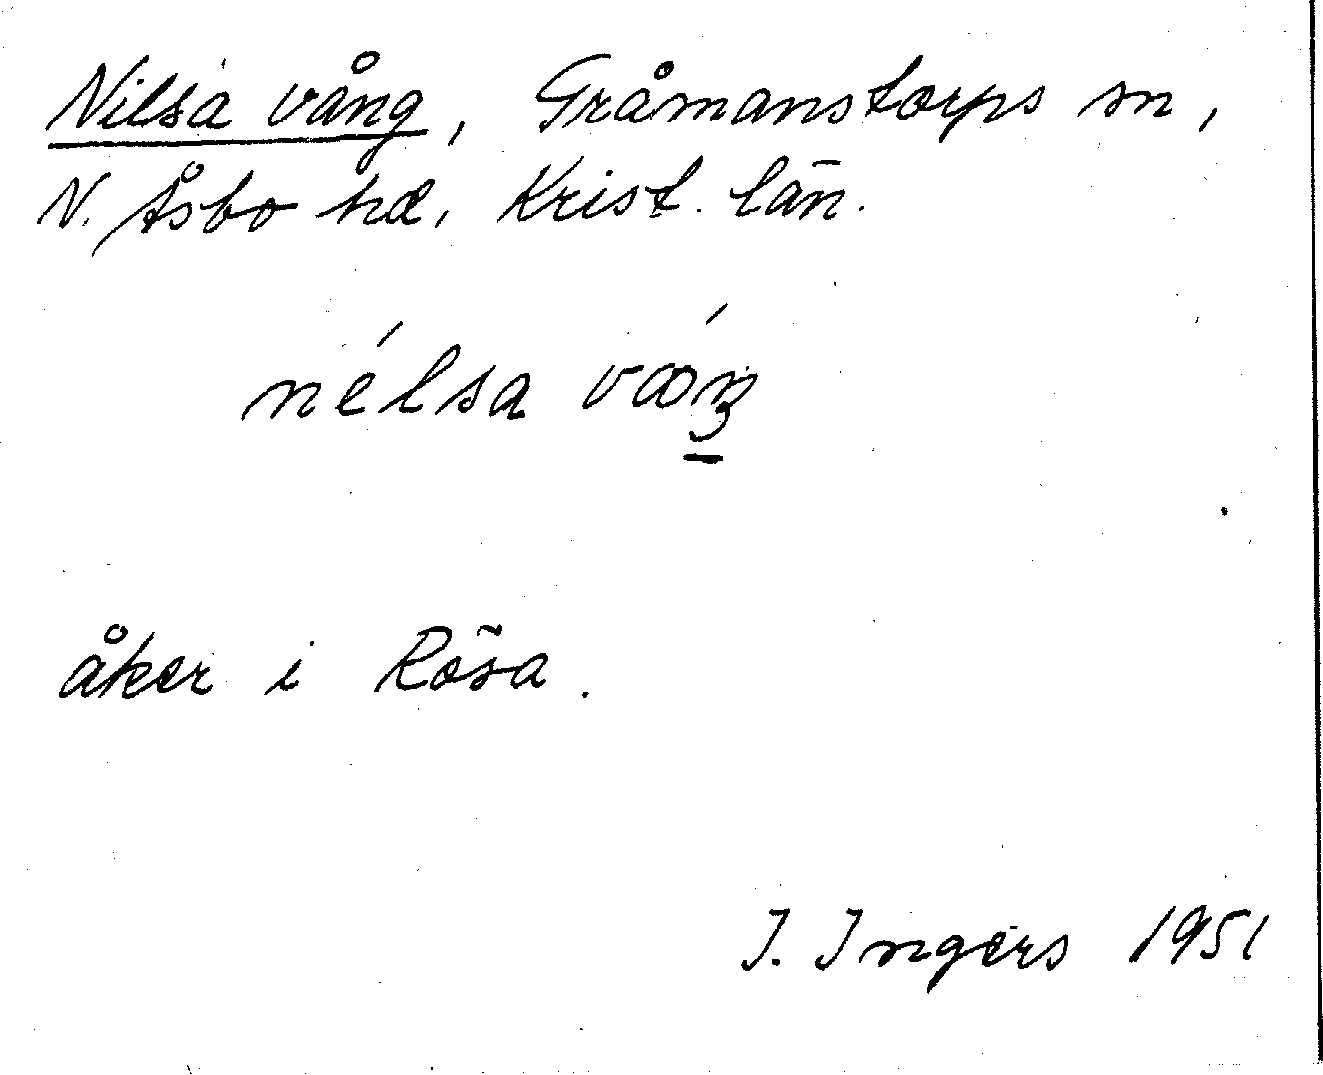 Nilsa vång, Gråmanstorps sn,
N. Åsbo hd, Krist. län.
nélsa
åker i Rösa.
I. Ingers 1951